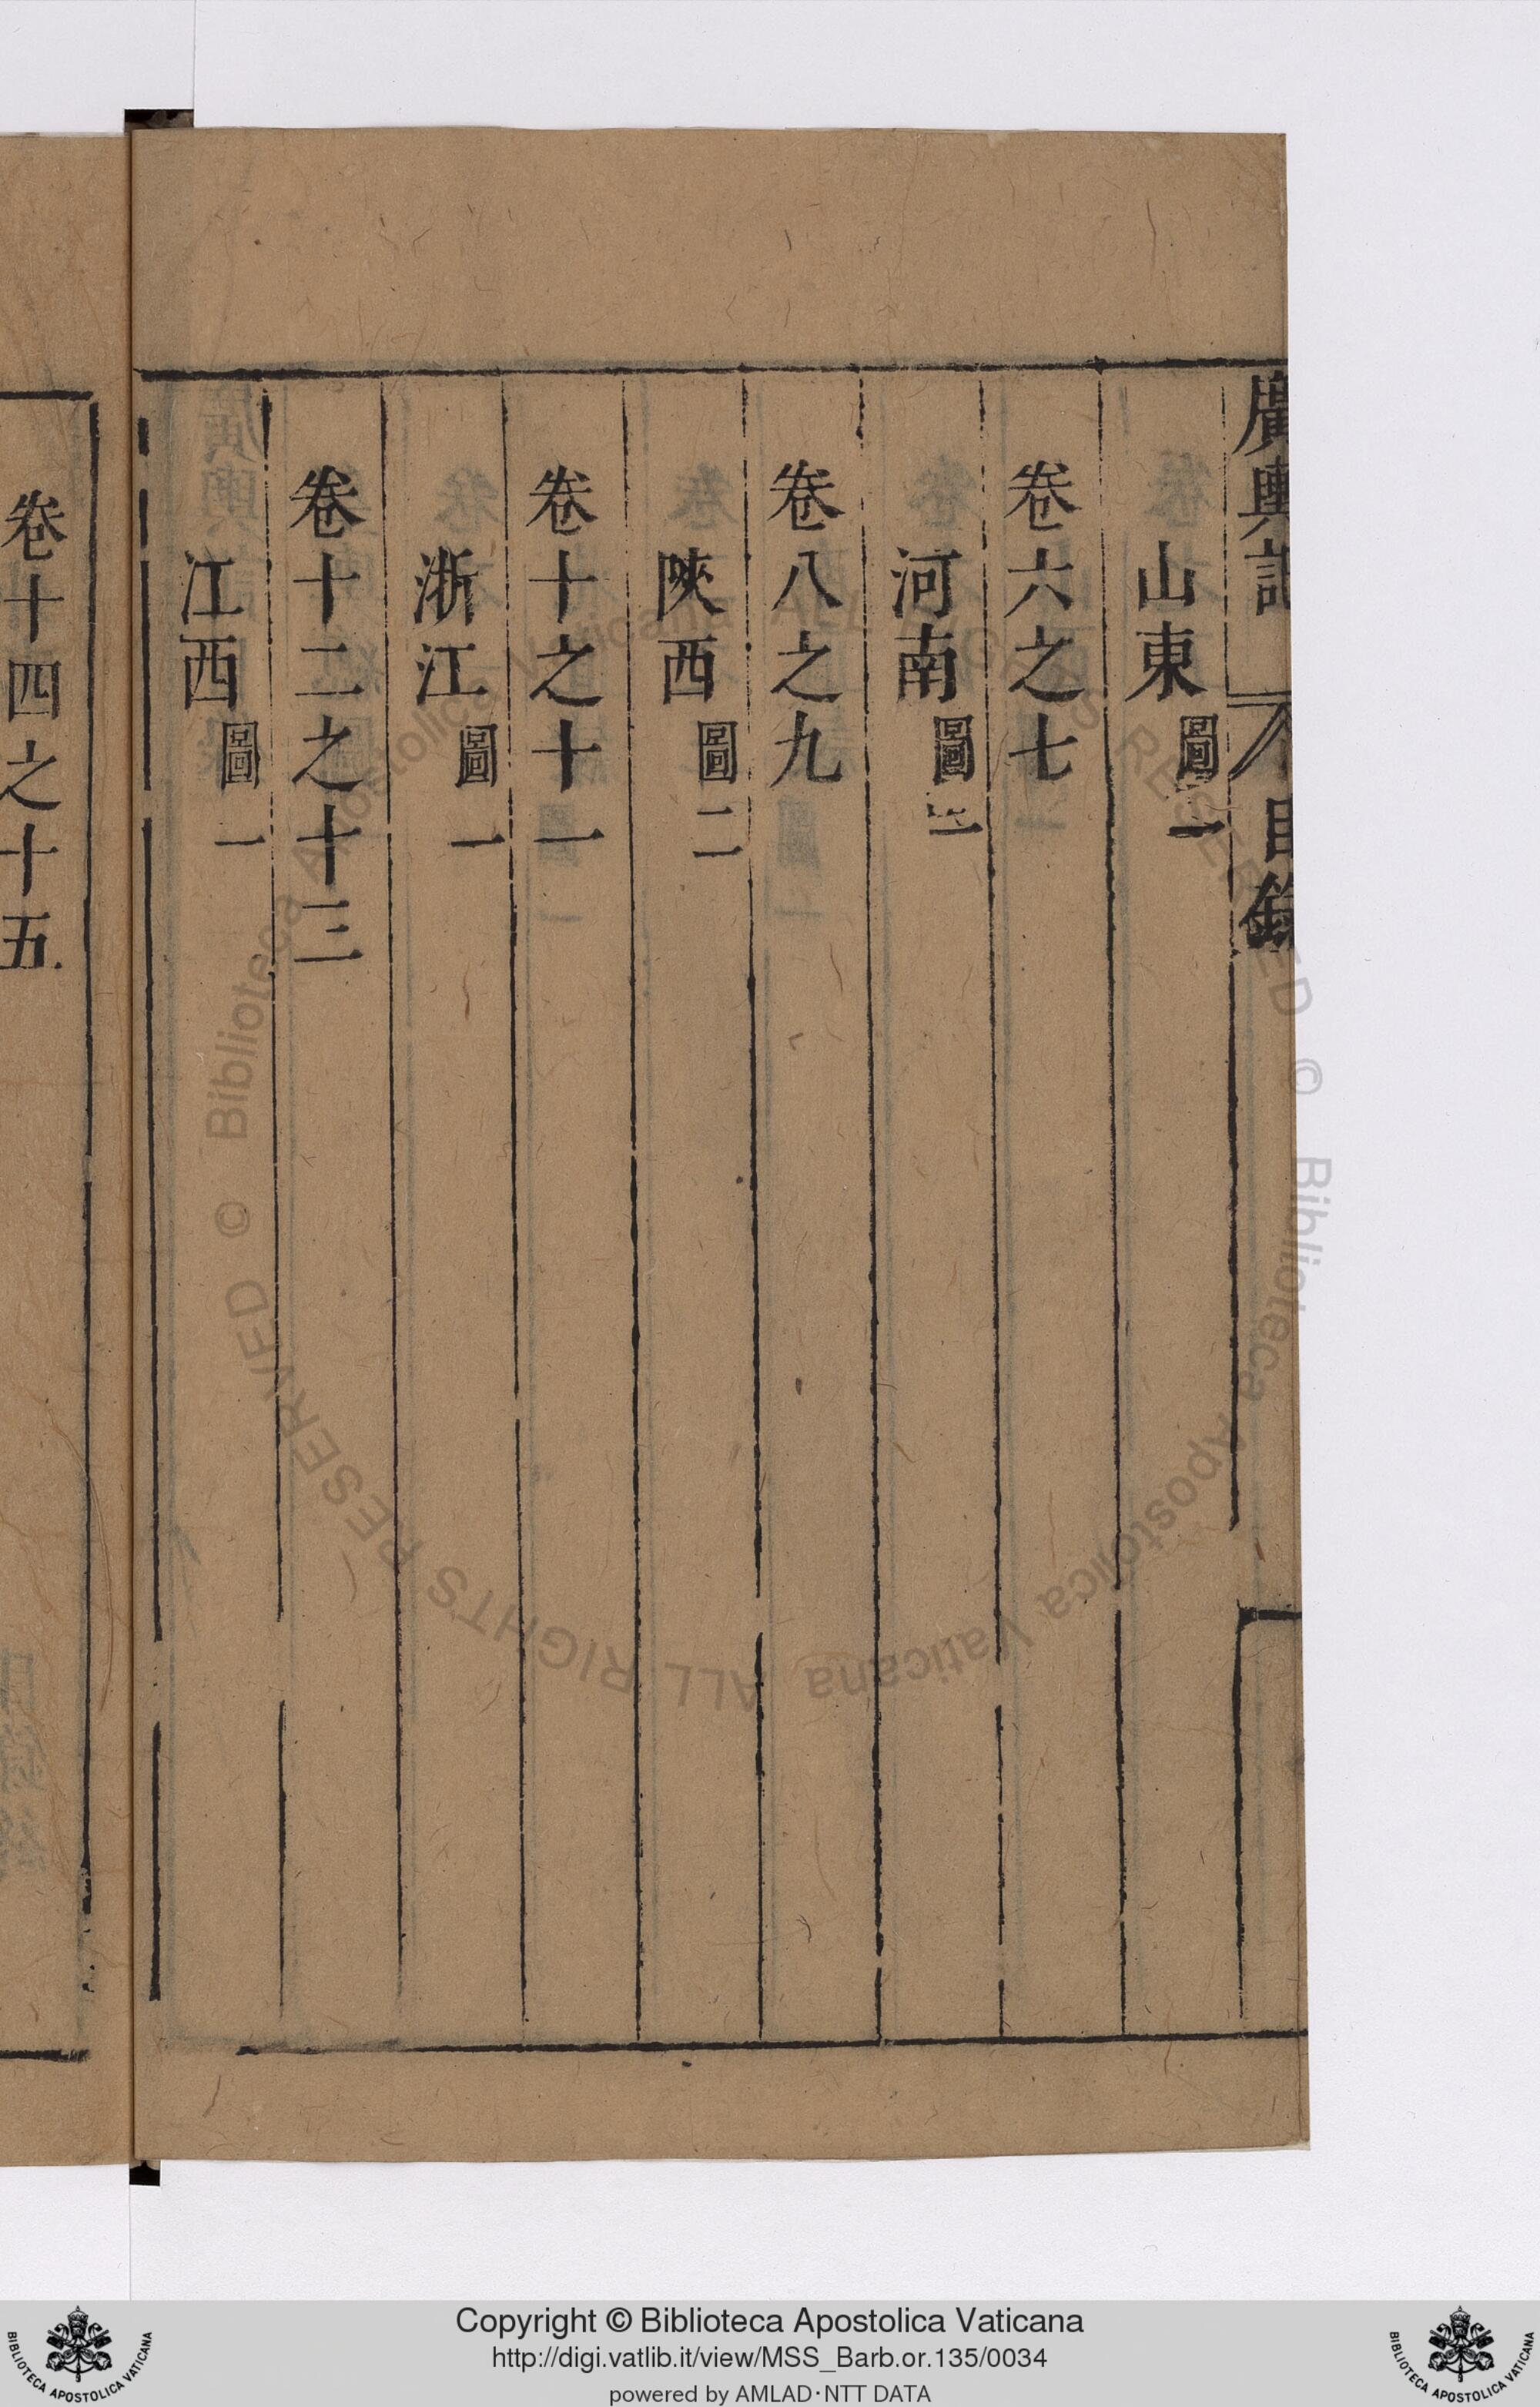 廣輿記 目錄
山東 圖一
卷六之七
河南 圖一
卷八之九
陜西 圖二
卷十之十一
浙江 圖一
卷十二之十三
江西 圖一
卷十四之十五
© Biblioteca Apostolica Vaticana ALL RIGHTS RESERVED © Biblioteca Apostolica Vaticana ALL RIGHTS RESERVED
Copyright © Biblioteca Apostolica Vaticana
http://digi.vatlib.it/view/MSS_Barb.or.135/0034
powered by AMLAD·NTT DATA
BIBLIOTECA APOSTOLICA VATICANA
BIBLIOTECA APOSTOLICA VATICANA